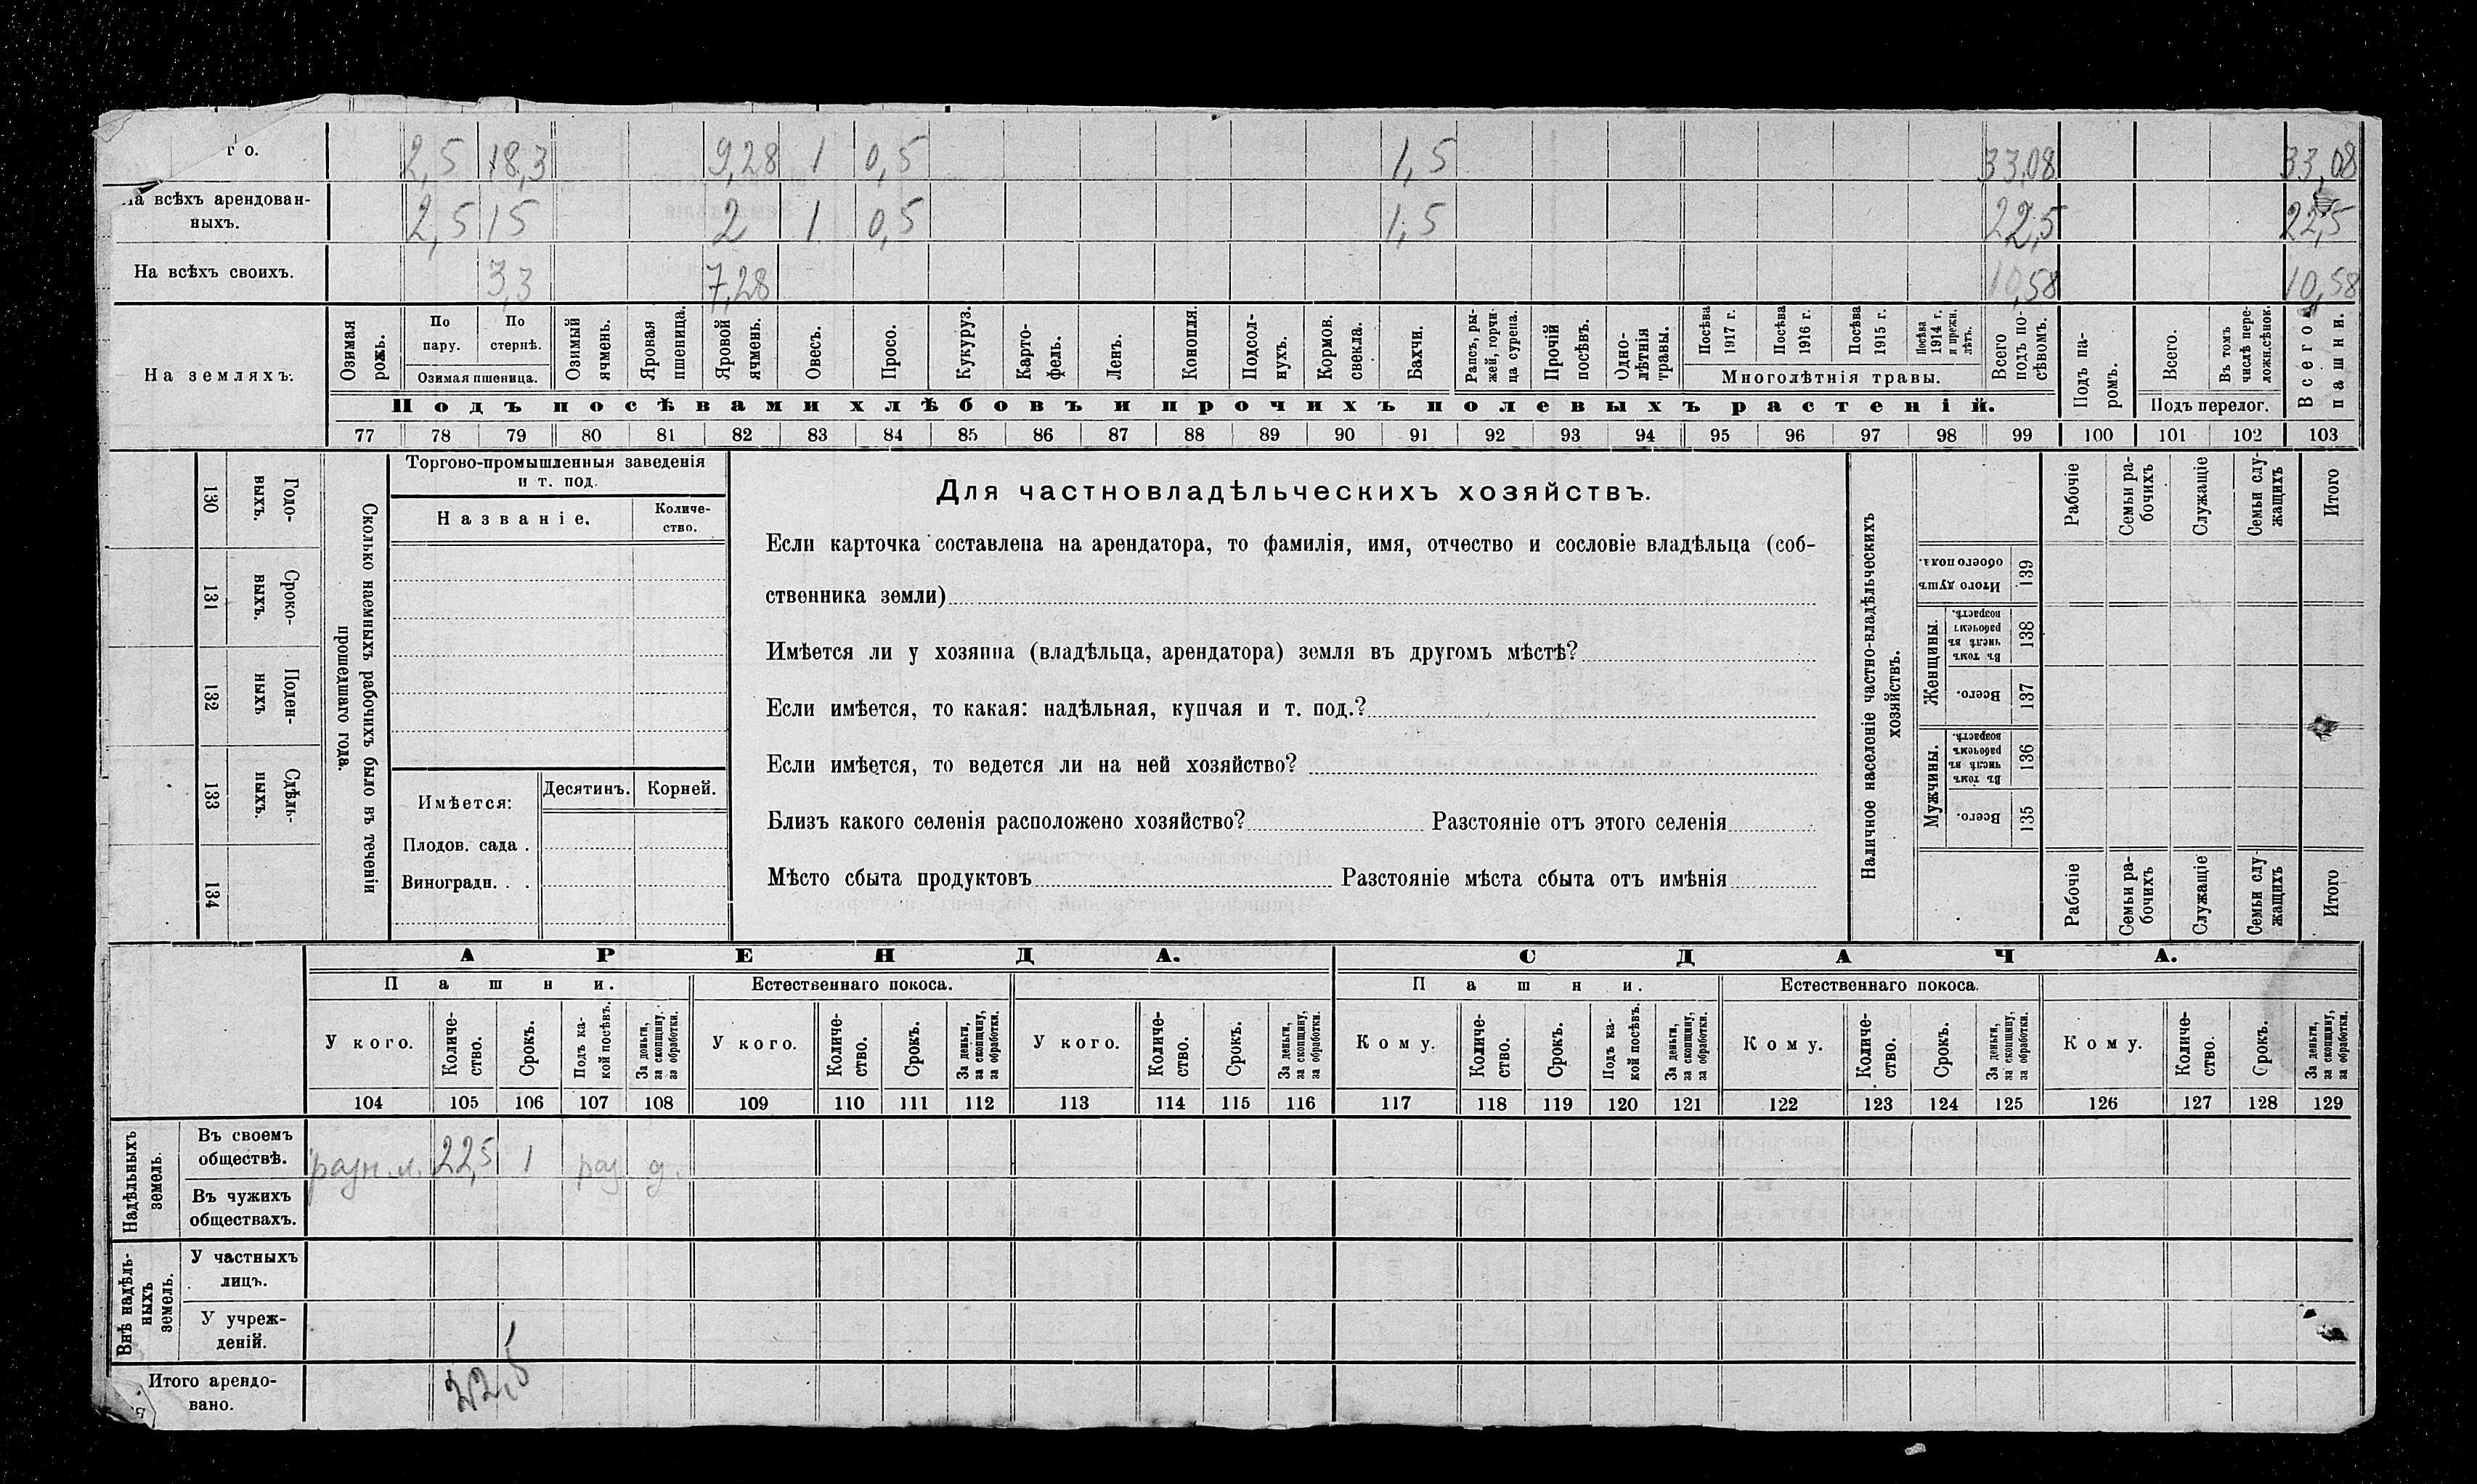 го. 2,5 18,3 9,28 1 0,5 1,5 33,08 33,08
На всѣхъ арендован-
ныхъ. 2,5 15 2 1 0,5 1,5 22,5 22,5
На всѣхъ своихъ. 3,3 7,28 10,58 10,58
На земляхъ.
Озимая рожь.
По пару.
По стернѣ.
Озимая пшеница.
Озимый ячмень.
Яровая пшеница.
Яровой ячмень.
Овесъ.
Просо.
Кукуруз.
Карто-
фель.
Ленъ.
Конопля.
Подсол-
нухъ.
Кормов. свекла.
Бахчи.
Рапсъ, ры-
жей, горчи-
ца сурепа.
Прочій посѣвъ.
Одно-
лѣтнія травы.
Посѣва 1917 г.
Посѣва 1916 г.
Посѣва 1915 г.
Посѣва 1914 г. и прежн. лѣтъ.
Многолѣтнія травы.
Всего подъ по-
сѣвомъ.
Подъ па-
ромъ.
Всего.
Въ томъ числѣ пере-
ложн.сѣнок.
Подъ перелог.
Всего пашни.
Подъ посѣвами хлѣбовъ и прочихъ полевыхъ растеній.
77 78 79 80 81 82 83 84 85 86 87 88 89 90 91 92 93 94 95 96 97 98 99 100 101 102 103
130 Годо-
выхъ.
131 Сроко-
ныхъ.
132 Поден-
ныхъ
133 Сдѣль-
ныхъ.
134
Сколько наемныхъ рабочихъ было въ теченіи
прошедшаго года.
Торгово-промышленныя заведенія
и т. под.
Названіе. Количе-
ство.
Имѣется: Десятинъ. Корней.
Плодов. сада .
Виноградн. . .
Для частновладѣльческихъ хозяйствъ.
Если карточка составлена на арендатора, то фамилія, имя, отчество и сословіе владѣльца (соб-
ственника земли)
Имѣется ли у хозяина (владѣльца, арендатора) земля въ другомъ мѣстѣ?
Если имѣется, то какая: надѣльная, купчая и т. под.?
Если имѣется, то ведется ли на ней хозяйство?
Близъ какого селенія расположено хозяйство? Разстояніе отъ этого селенія
Мѣсто сбыта продуктовъ Разстояніе мѣста сбыта отъ имѣнія
Наличное населеніе частно-владѣльческихъ
хозяйствъ.
Рабочіе
Семьи ра-
бочихъ
Служащіе
Семьи слу-
жащихъ
Итого
Итого душъ обоего пола. 139
Женщины.
Въ томъ числѣ въ рабочемъ возрастѣ. 138
Всего. 137
Мужчины.
Въ томъ числѣ въ рабочемъ возрастѣ. 136
Всего. 135
Рабочіе
Семьи ра-
бочихъ
Служащіе
Семьи слу-
жащихъ
Итого
АРЕНДА. СДАЧА.
Пашни. Естественнаго покоса. Пашни. Естественнаго покоса.
У кого.
Количе-
ство.
Срокъ.
Подъ ка-
кой посѣвъ.
За деньги, за скопщину, за обработки.
У кого.
Количе-
ство.
Срокъ.
За деньги, за скопщину, за обработки.
У кого.
Количе-
ство.
Срокъ.
За деньги, за скопщину, за обработки.
Кому.
Количе-
ство.
Срокъ.
Подъ ка-
кой посѣвъ.
За деньги, за скопщину, за обработки.
Кому.
Количе-
ство.
Срокъ.
За деньги, за скопщину, за обработки.
Кому.
Количе-
ство.
Срокъ.
За деньги, за скопщину, за обработки.
104 105 106 107 108 109 110 111 112 113 114 115 116 117 118 119 120 121 122 123 124 125 126 127 128 129
Надѣльныхъ земель.
Въ своемъ
обществѣ. разн. л. 22,5 1 раз д.
Въ чужихъ
обществахъ.
Внѣ надѣль-
ныхъ земель.
У частныхъ
лицъ.
У учреж-
деній.
Итого арендо-
вано. 22,5